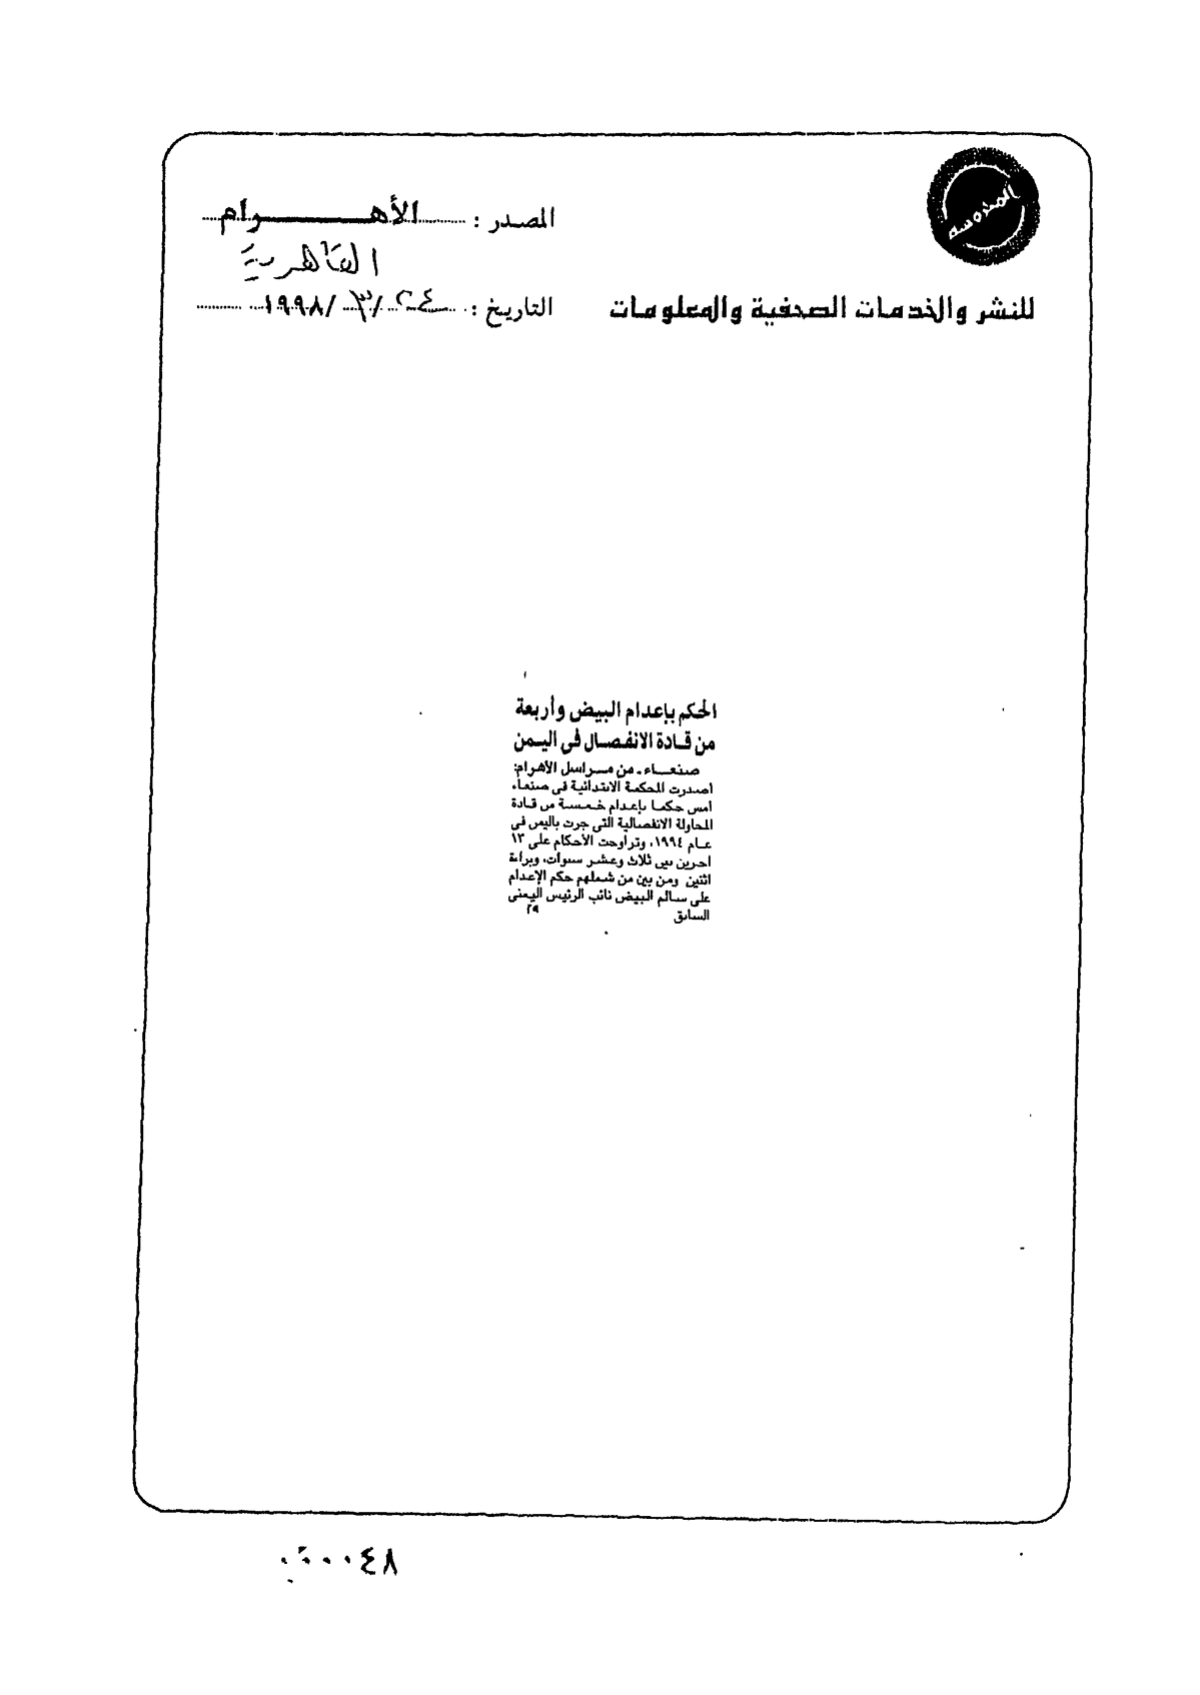 المحروسة
للنشر والخدمات الصحفية والمعلومات
المصدر : الأهرام
القاهرية
التاريخ : ٢٤/٣/١٩٩٨
الحكم بإعدام البيض وأربعة
من قادة الانفصال فى اليمن
صنعاء ـ من مراسل الأهرام:
أصدرت المحكمة الابتدائية فى صنعاء
أمس حكما بإعدام خمسة من قادة
المحاولة الانفصالية التى جرت باليمن فى
عام ١٩٩٤، وتراوحت الأحكام على ١٣
آخرين بين ثلاث وعشر سنوات، وبراءة
اثنين ومن بين من شملهم حكم الإعدام
على سالم البيض نائب الرئيس اليمنى
السابق ٢٩